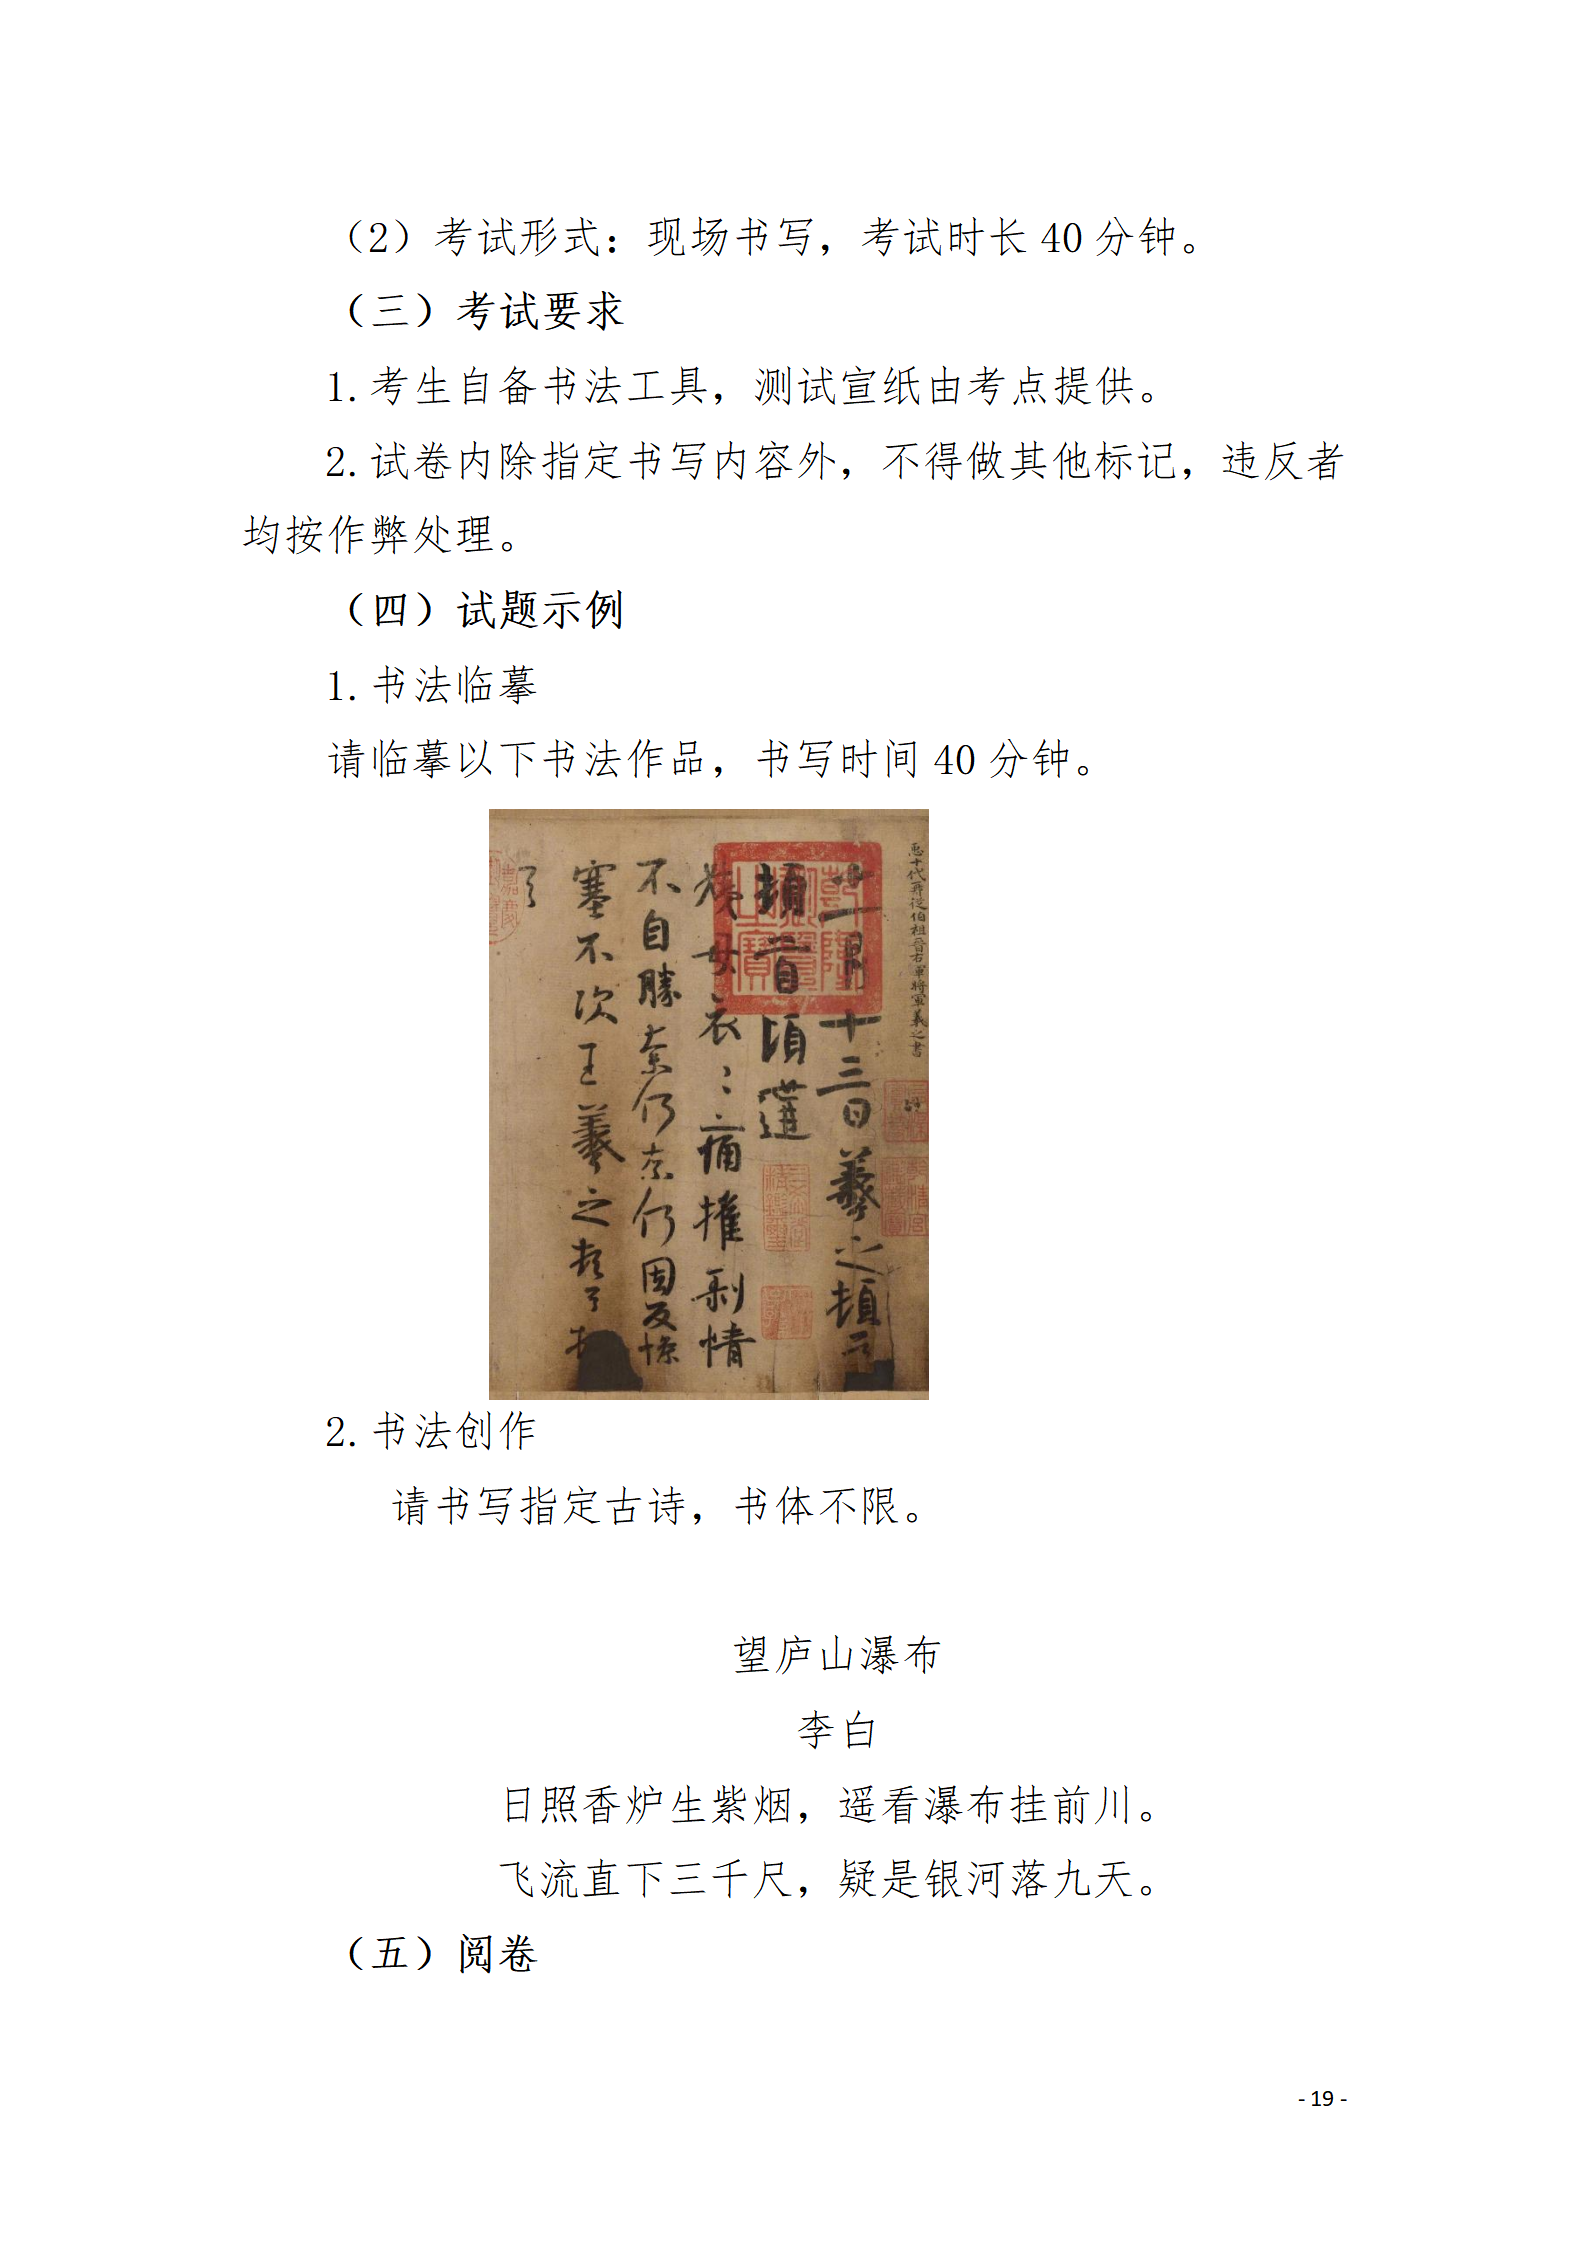 （2）考试形式：现场书写，考试时长 40 分钟。
（三）考试要求
1.考生自备书法工具，测试宣纸由考点提供。
2.试卷内除指定书写内容外，不得做其他标记，违反者
均按作弊处理。
（四）试题示例
1.书法临摹
请临摹以下书法作品，书写时间 40 分钟。
十一月十三日羲之頓首
頓首頃遘
姨母哀〻痛摧剥情
不自勝奈何奈何因反慘
塞不次王羲之頓首頓
首
2.书法创作
请书写指定古诗，书体不限。
望庐山瀑布
李白
日照香炉生紫烟，遥看瀑布挂前川。
飞流直下三千尺，疑是银河落九天。
（五）阅卷
- 19 -